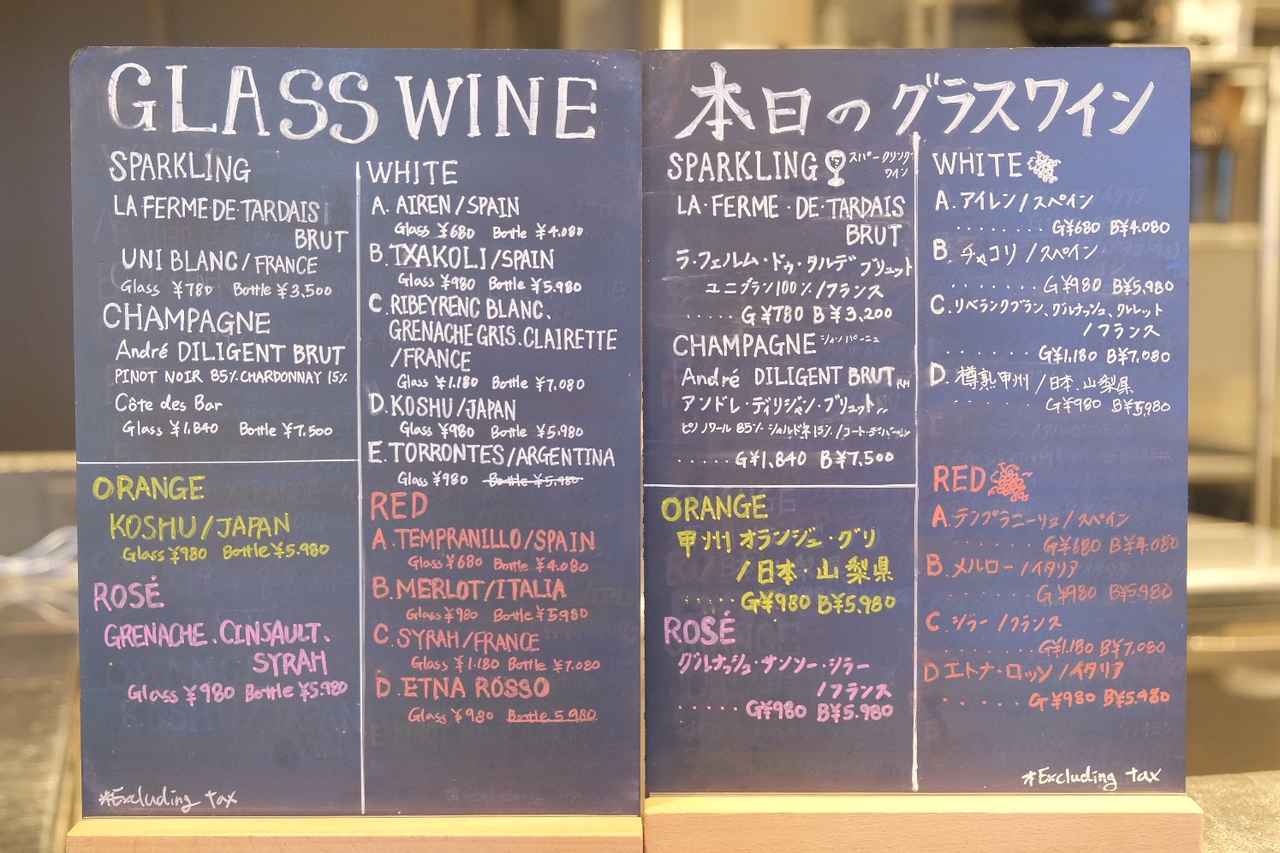 GLASS WINE
SPARKLING
LA FERME·DE·TARDAIS
BRUT
UNI BLANC/FRANCE
Glass ¥780 Bottle ¥3,500
CHAMPAGNE
André DILIGENT BRUT
PINOT NOIR 85%.CHARDONNAY 15%
Côte des Bar
Glass ¥1.840 Bottle ¥7.500
ORANGE
KOSHU/JAPAN
Glass ¥980 Bottle ¥5.980
ROSÉ
GRENACHE.CINSAULT.
SYRAH
Glass ¥980 Bottle ¥5.980
*Excluding tax
WHITE
A. AIREN/SPAIN
Glass ¥680 Bottle ¥4.080
B. TXAKOLI/SPAIN
Glass ¥980 Bottle ¥5.980
C. RIBEYRENC BLANC.
GRENACHE GRIS.CLAIRETTE
/FRANCE
Glass ¥1.180 Bottle ¥7.080
D. KOSHU/JAPAN
Glass ¥980 Bottle ¥5.980
E. TORRONTES/ARGENTINA
Glass ¥980 Bottle ¥5.980
RED
A. TEMPRANILLO/SPAIN
Glass ¥680 Bottle ¥4.080
B. MERLOT/ITALIA
Glass ¥980 Bottle ¥5.980
C. SYRAH/FRANCE
Glass ¥1.180 Bottle ¥7.080
D. ETNA ROSSO
Glass ¥980 Bottle 5.980
本日のグラスワイン
SPARKLING スパークリング
ワイン
LA·FERME·DE·TARDAIS
BRUT
ラ・フェルム・ドゥ・タルデ ブリュット
ユニブラン100%/フランス
.....G¥780 B¥3,200
CHAMPAGNE シャンパーニュ
André DILIGENT BRUT RM
アンドレ・ディリジャン・ブリュット
ピノノワール 85% シャルドネ15%/コート・デ・バール
.....G¥1.840 B¥7.500
ORANGE
甲州 オランジュ・グリ
/日本・山梨県
.....G¥980 B¥5.980
ROSÉ
グルナッシュ・サンソー・シラー
/フランス
.....G¥980 B¥5.980
WHITE
A. アイレン/スペイン
........G¥680 B¥4.080
B. チャコリ/スペイン
........G¥980 B¥5,980
C. リベランクブラン、グルナッシュ、クレレット
/フランス
........G¥1.180 B¥7,080
D. 樽熟甲州/日本.山梨県
........G¥980 B¥5,980
RED
A. テンプラニーリョ/スペイン
........G¥680 B¥4.080
B. メルロー/イタリア
........G¥980 B¥5.980
C. シラー/フランス
........G¥1.180 B¥7,080
D エトナ・ロッソ/イタリア
......G¥980 B¥5.980
*Excluding tax